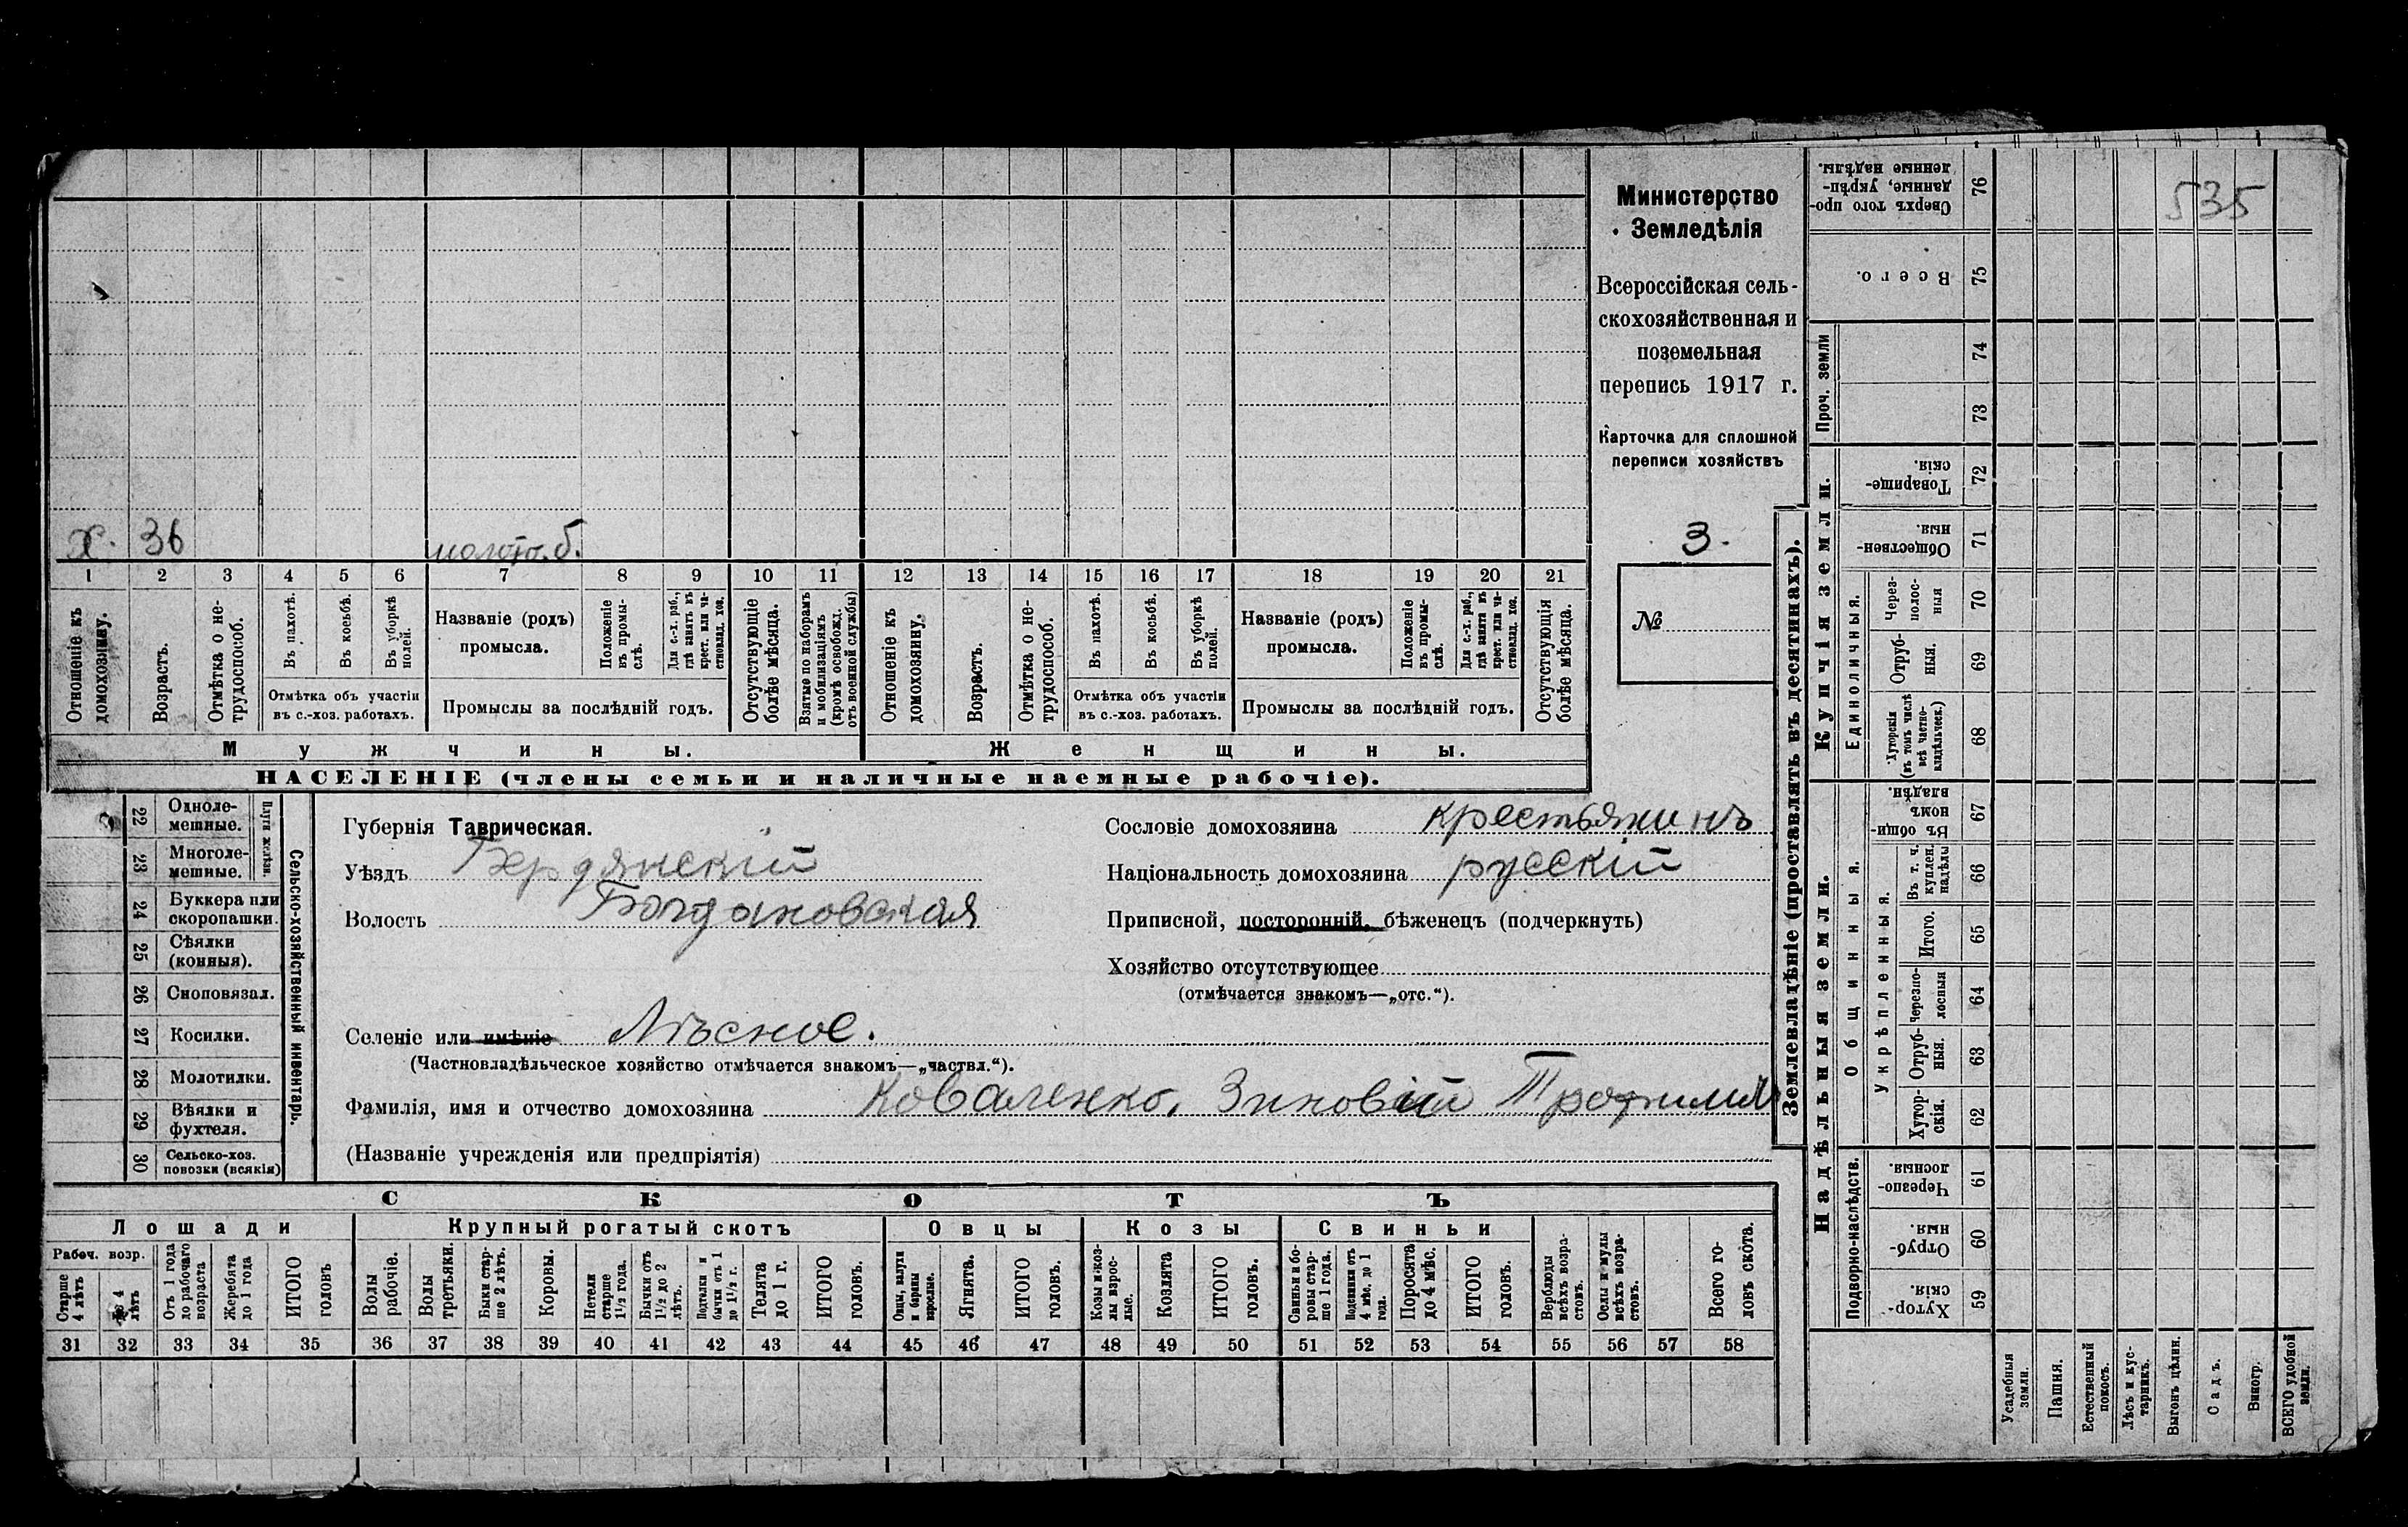 535
Министерство
Земледѣлія
Всероссійская сель-
скохозяйственная и
поземельная
перепись 1917 г.
Карточка для сплошной
переписи хозяйствъ
3.
№
х. 36
1 2 3 4 5 6 7 8 9 10 11 12 13 14 15 16 17 18 19 20 21
Отношеніе къ домохозяину.
Возрастъ.
Отмѣтка о не-трудоспособ.
Въ пахотѣ.
Въ косьбѣ.
Въ уборкѣ полей.
Отмѣтка объ участіи
въ с.-хоз. работахъ.
Названіе (родъ)
промысла.
Положеніе въ промы-слѣ.
Для с.-х. раб., гдѣ занятъ въ крест. или ча-стновлад. хоз.
Промыслы за послѣдній годъ.
Отсутствующіе болѣе мѣсяца.
Взятые по наборамъ и мобилизаціямъ (кромѣ освобожд. отъ военной службы)
Отношеніе къ домохозяину.
Возрастъ.
Отмѣтка о не-трудоспособ.
Въ пахотѣ.
Въ косьбѣ.
Въ уборкѣ полей.
Отмѣтка объ участіи
въ с.-хоз. работахъ.
Названіе (родъ)
промысла.
Положеніе въ промы-слѣ.
Для с.-х. раб., гдѣ занята въ крест. или ча-стновлад. хоз.
Промыслы за послѣдній годъ.
Отсутствующія болѣе мѣсяца.
Мужчины.
Женщины.
НАСЕЛЕНІЕ (члены семьи и наличные наемные рабочіе).
22 Одноле-мешные.
23 Многоле-мешные.
Плуги желѣзн.
24 Буккера или скоропашки.
25 Сѣялки (конныя).
26 Сноповязал.
27 Косилки.
28 Молотилки.
29 Вѣялки и фухтеля.
30 Сельско-хоз. повозки (всякія)
Сельско-хозяйственный инвентарь.
Губернія Таврическая.
Уѣздъ Бердянскій
Волость Богдановская
Селеніе или имѣніе Лѣсное.
(Частновладѣльческое хозяйство отмѣчается знакомъ—„частвл.“).
Фамилія, имя и отчество домохозяина Коваленко, Зиновій Трофимов
(Названіе учрежденія или предпріятія)
Сословіе домохозяина крестьянинъ
Національность домохозяина русскій
Приписной, посторонній, бѣженецъ (подчеркнуть)
Хозяйство отсутствующее
(отмѣчается знакомъ—„отс.“).
СКОТЪ
Лошади
Крупный рогатый скотъ
Овцы
Козы
Свиньи
Рабоч. возр.
Старше 4 лѣтъ
До 4 лѣтъ
Отъ 1 года до рабочаго возраста
Жеребята до 1 года
ИТОГО головъ
Волы рабочіе.
Волы третьяки.
Быки стар-ше 2 лѣтъ.
Коровы.
Нетели старше 1½ года.
Бычки отъ 1½ до 2 лѣтъ.
Подтелки и бычки отъ 1 до 1½ г.
Телята до 1 г.
ИТОГО головъ.
Овцы, валухи и бараны взрослые.
Ягнята.
ИТОГО головъ.
Козы и коз-лы взрос-лые.
Козлята
ИТОГО головъ.
Свиньи и бо-ровы стар-ше 1 года.
Подсвинки отъ 4 мѣс. до 1 года.
Поросята до 4 мѣс.
ИТОГО головъ.
Верблюды всѣхъ возра-стовъ.
Ослы и мулы всѣхъ возра-стовъ.
Всего го-ловъ скота.
31 32 33 34 35 36 37 38 39 40 41 42 43 44 45 46 47 48 49 50 51 52 53 54 55 56 57 58
Землевладѣніе (проставлять въ десятинахъ).
Надѣльныя земли.
Купчія земли.
Проч. земли
Подворно-наслѣдств.
Общинныя.
Укрѣпленныя.
Единоличныя.
Сверхъ того про-данные, укрѣп-ленные надѣлы. 76
Всего. 75
74
73
Товарище-скія. 72
Обществен-ныя. 71
Через-полос-ныя 70
Отруб-ныя. 69
Хуторскія (въ томъ числѣ всѣ частно-владѣльческ.) 68
Въ общи-номъ владѣн. 67
Въ т. ч. куплен. надѣлы 66
Итого. 65
Черезпо-лосныя 64
Отруб-ныя. 63
Хутор-скія. 62
Черезпо-лосныя. 61
Отруб-ныя. 60
Хутор-скія. 59
Усадебныя земли.
Пашня.
Естественный покосъ.
Лѣсъ и кус-тарникъ.
Выгонъ цѣлин.
Садъ.
Виногр.
ВСЕГО удобной земли.